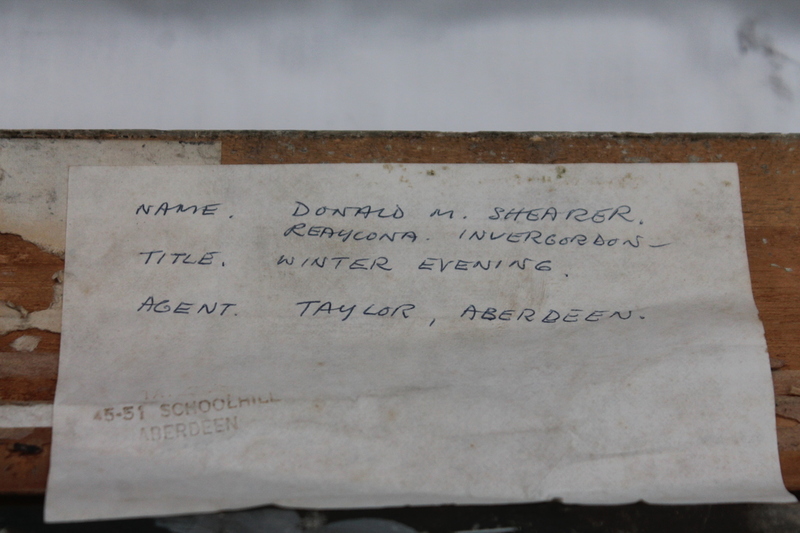 NAME. DONALD M. SHEARER.
REAYLONA. INVERGORDON-
TITLE. WINTER EVENING.
AGENT. TAYLOR, ABERDEEN.
45-51 SCHOOLHILL
ABERDEEN